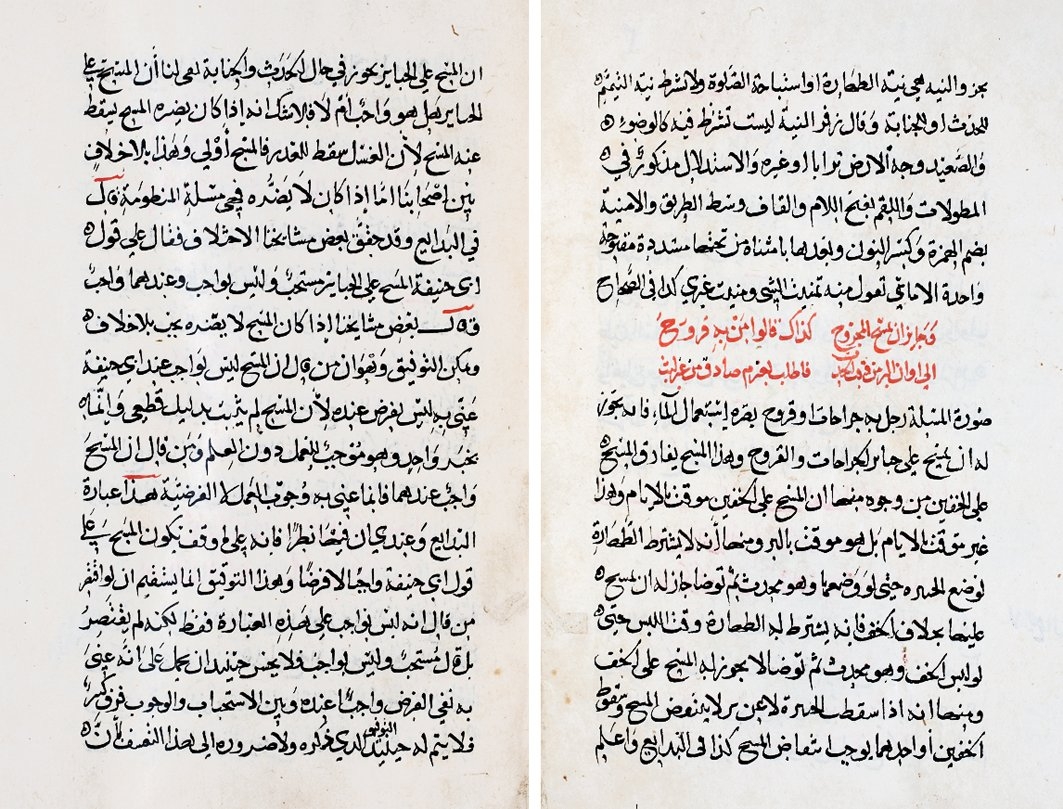 يجز والنيه هي نية الطهارة او استباحة الصلوة ولا تشترط نية التيمم
للحدث او للجنابة وقال زفر النية ليست بشرط فيه كالوضوء
والصعيد وجه الارض ترابا او غيره والاستدلال مذكور في
المطولات واللقم بفتح اللام والقاف وسط الطريق والامنية
بضم الهمزة وكسر النون وبعدها يا مثناة من تحتها مشددة مفتوحة
واحدة الاماني تقول منه تمنيت الشي ومنيت غيري كذا في الصحاح
وجايز ان يمسح المجروح كذاك قالوا من به قروح
الي اوان البرء فاطلب بعزم صادق
صورة المسئلة رجل به جراحات او قروح يضره استعمال الماء فانه يجوز
له ان يمسح علي جباير الجراحات والقروح وهذا المسح يفارق المسح
على الخفين من وجوه منها ان المسح على الخفين موقت بالايام وهذا
غير موقت بالايام بل هو موقت بالبر ومنها أنه لا يشترط الطهارة
لوضع الجبيره حتي لو وضعها وهو محدث ثم توضا جاز له ان يمسح
عليها بخلاف الخف فانه يشترط له الطهارة وقت اللبس حتي
لو لبس الخف وهو محدث ثم توضا لا يجوز له المسح على الخف
ومنها انه اذا سقطت الجبيرة لا عن بر لا ينتقض المسح وسقوط
الخفين أو احدهما يوجب انتقاض المسح كذا في البدايع واعلم
ان المسح علي الجباير يجوز في حال الحدث والجنابة بقي لنا أن المسح علي
الجباير هل هو واجب أم لا فلا شك انه إذا كان يضره المسح يسقط
عنه المسح لأن الغسل سقط للعذر فالمسح أولي وهذا بلا خلاف
بين اصحابنا امّا إذا كان لا يضره فهي مسئلة المنظومة قال
في البدايع وقد حقق بعض مشايخنا الاختلاف فقال علي قول
ابي حنيفة المسح علي الجباير مستحب وليس بواجب وعندهما واجب
وقال بعض مشايخنا إذا كان المسح لا يضره يجب بلا خلاف
ويمكن التوفيق وهو ان من قال ان المسح ليس بواجب عند ابي حنيفة
عني به ليس بفرض عنده لأن المسح لم يثبت بدليل قطعي وانما
بخبر واحد وهو موجب للعمل دون العلم ومن قال ان المسح
واجب عندهما فانما عني به وجوب العمل لا الفرضية هذا عبارة
البدايع وعندي ان فيها نظرا فانه علي وقف يكون المسح علي
قول ابي حنيفة واجبا لا فرضا وهذا التوفيق انما يستقيم ان لو اقتصر
من قال انه ليس بواجب علي هذه العبارة فقط لكنه لم يقتصر
بل قال مستحب وليس بواجب فلا يحسن حينيذ ان يحمل على انه عني
به نفي الفرض واجبا عنده وبين الاستحباب والوجوب فرق كبير
فلا يتم له حينيذ التوفيق الذي ذكره ولا ضرورة الي هذا التعسف لأن